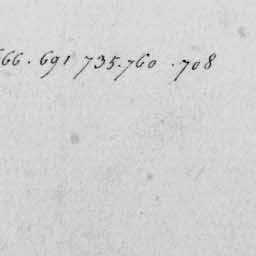 66 . 691 735.760 .708